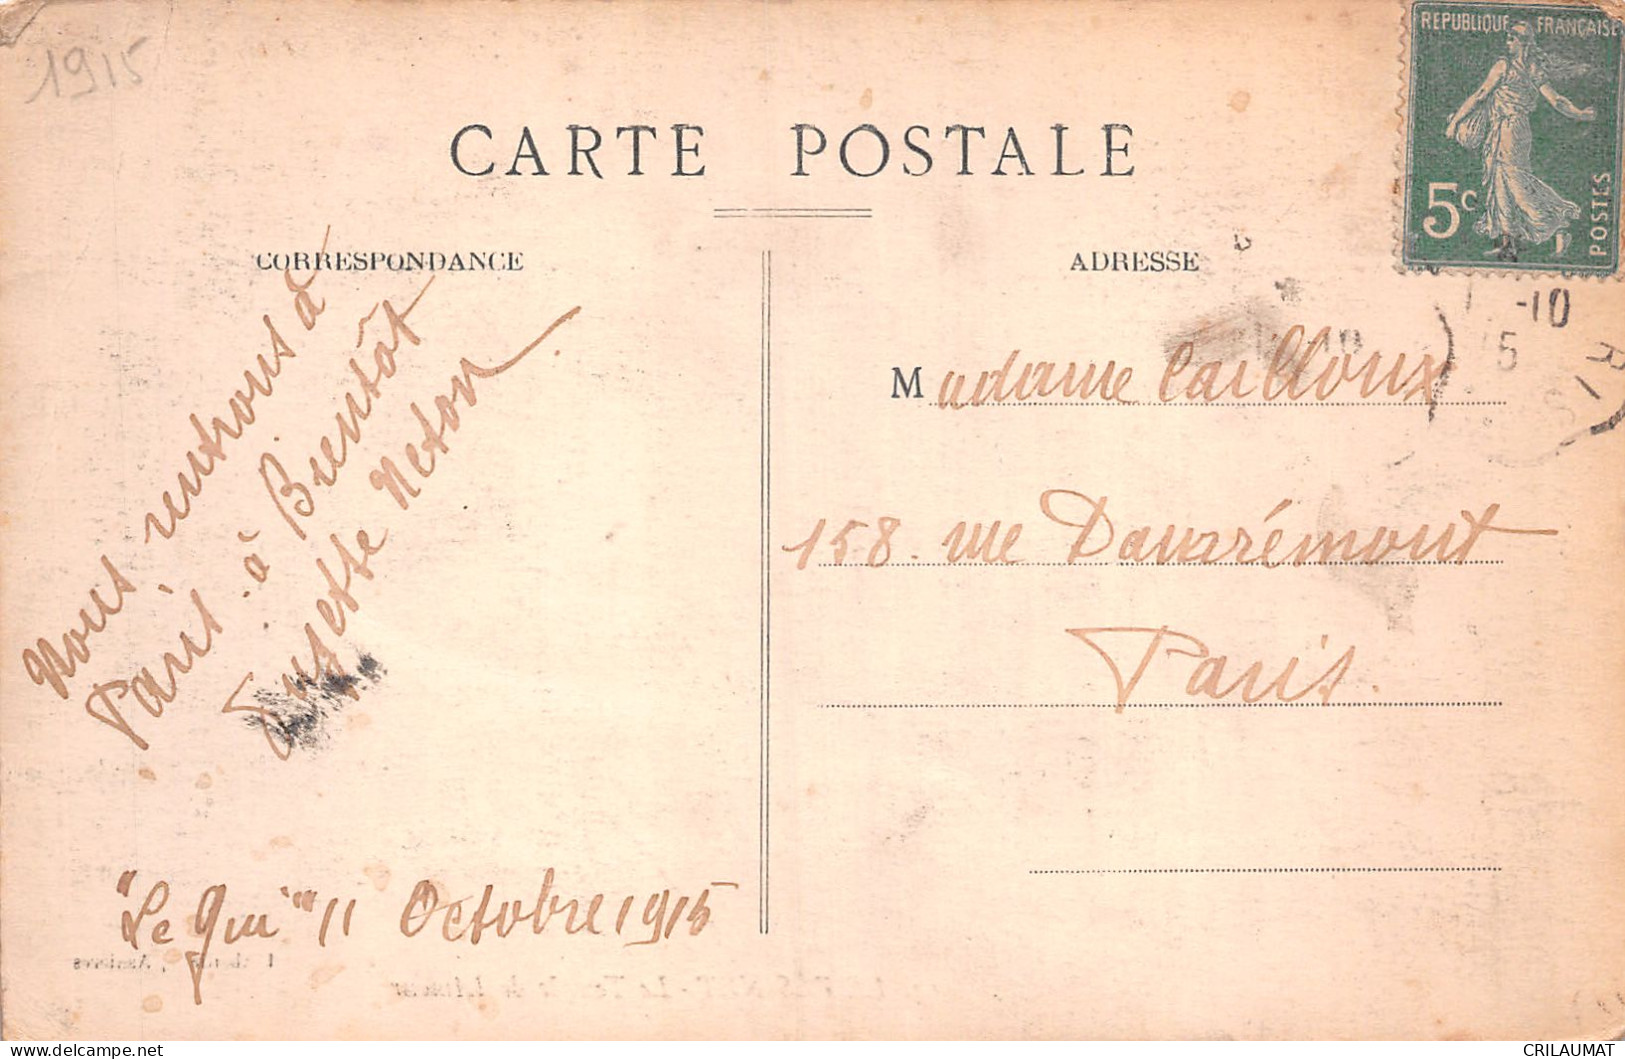 1915
REPUBLIQUE FRANÇAISE
5c
POSTES
CARTE POSTALE
CORRESPONDANCE
ADRESSE
-10
15
RIS
Nous rentrons à
Paris. à Bientôt
Suzette Neton
Madame Cailloux
158. rue Damrémont
Paris.
"Le Gui" 11 Octobre 1915
Asnières
CRILAUMAT